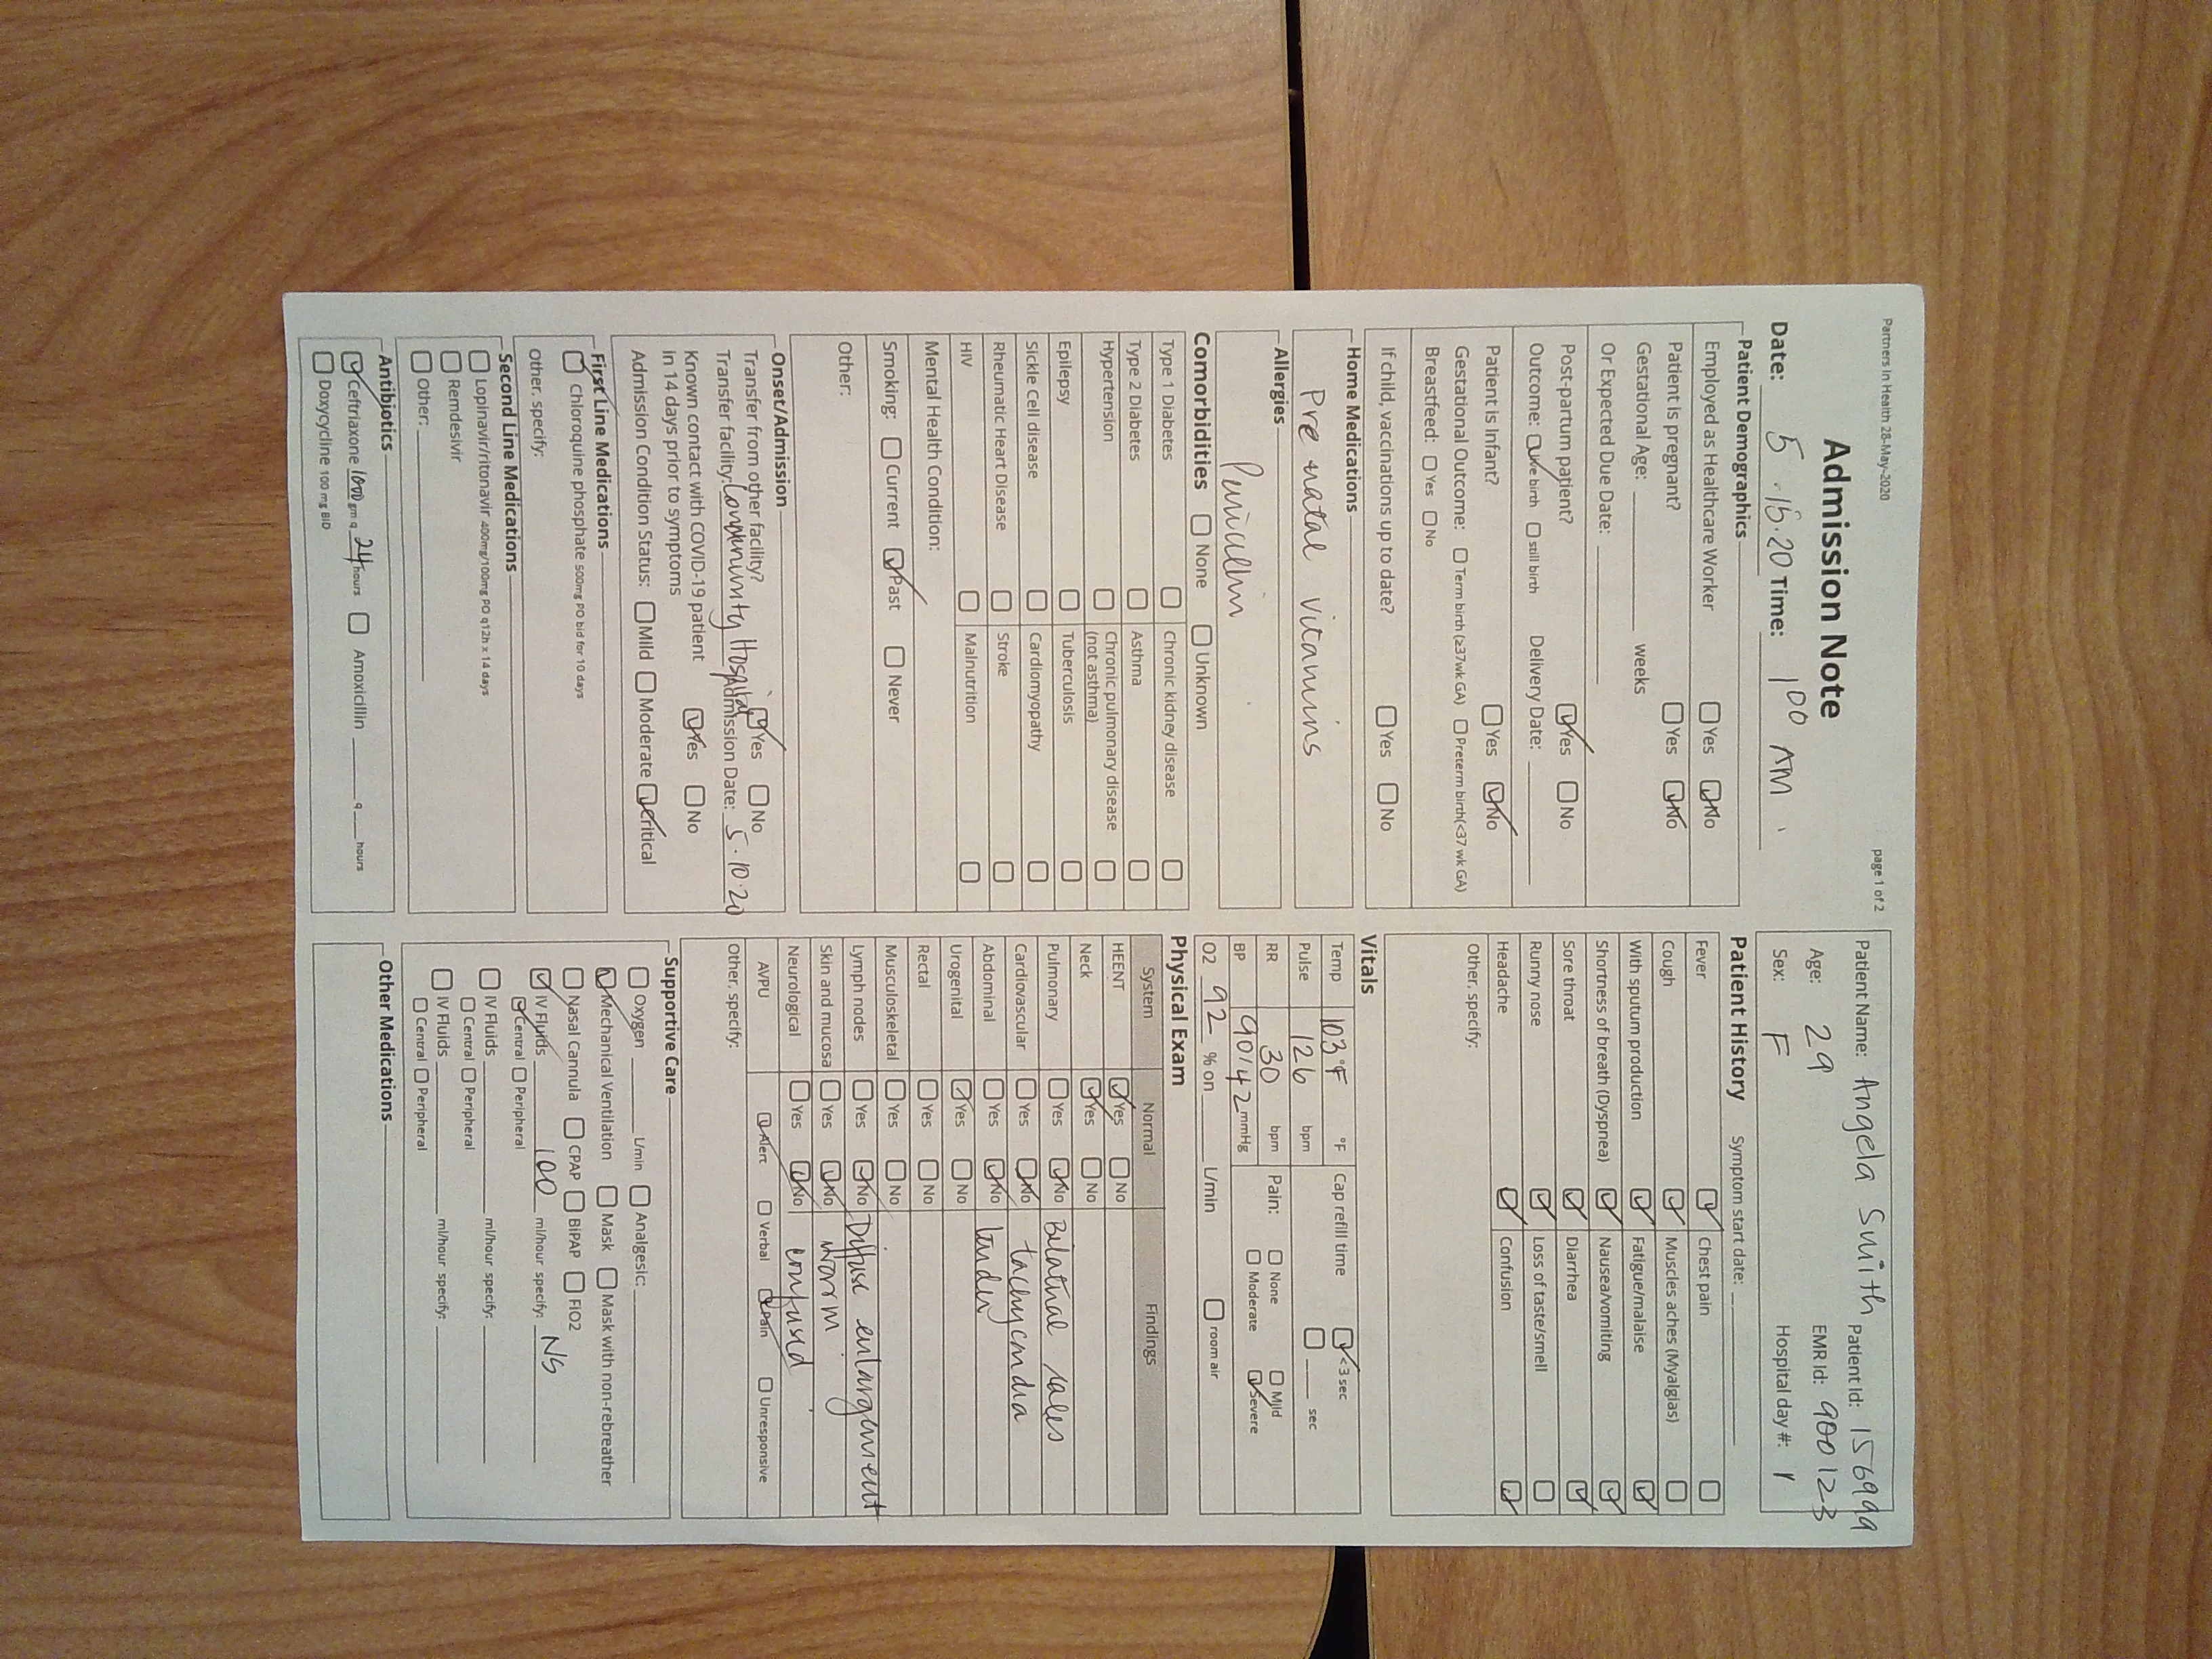 Partners In Health 28-May-2020
page 1 of 2
Admission Note
Date: 5.16.20 Time: 1 00 AM
Patient Demographics
Employed as Healthcare Worker Yes No
Patient is pregnant? Yes No
Gestational Age: weeks
Or Expected Due Date:
Post-partum patient? Yes No
Outcome: Live birth still birth Delivery Date:
Patient is Infant? Yes No
Gestational Outcome: Term birth (≥37wk GA) Preterm birth(<37 wk GA)
Breastfeed: Yes No
If child, vaccinations up to date? Yes No
Home Medications
Pre natal vitamins
Allergies
Penicillin
Comorbidities None Unknown
Type 1 Diabetes Chronic kidney disease
Type 2 Diabetes Asthma
Hypertension Chronic pulmonary disease (not asthma)
Epilepsy Tuberculosis
Sickle Cell disease Cardiomyopathy
Rheumatic Heart Disease Stroke
HIV Malnutrition
Mental Health Condition:
Smoking: Current Past Never
Other:
Onset/Admission
Transfer from other facility? Yes No
Transfer facility: Community Hospital Admission Date: 5.10.20
Known contact with COVID-19 patient Yes No
in 14 days prior to symptoms
Admission Condition Status: Mild Moderate Critical
First Line Medications
Chloroquine phosphate 500mg PO bid for 10 days
Other, specify:
Second Line Medications
Lopinavir/ritonavir 400mg/100mg PO q12h x 14 days
Remdesivir
Other:
Antibiotics
Ceftriaxone 1000 gm q 24 hours Amoxicillin q hours
Doxycycline 100 mg BID
Patient Name: Angela Smith Patient Id: 156999
Age: 29 EMR Id: 900123
Sex: F Hospital day #: 1
Patient History Symptom start date:
Fever Chest pain
Cough Muscles aches (Myalgias)
With sputum production Fatigue/malaise
Shortness of breath (Dyspnea) Nausea/vomiting
Sore throat Diarrhea
Runny nose Loss of taste/smell
Headache Confusion
Other, specify:
Vitals
Temp 103°F °F Cap refill time <3 sec
Pulse 126 bpm sec
RR 30 bpm Pain: None Mild
BP 90/42 mmHg Moderate Severe
O2 92 % on L/min room air
Physical Exam
System Normal Findings
HEENT Yes No
Neck Yes No
Pulmonary Yes No Bilateral rales
Cardiovascular Yes No tachycardia
Abdominal Yes No tender
Urogenital Yes No
Rectal Yes No
Musculoskeletal Yes No
Lymph nodes Yes No Diffuse enlargement
Skin and mucosa Yes No worm
Neurological Yes No confused
AVPU Alert Verbal Pain Unresponsive
Other, specify:
Supportive Care
Oxygen L/min Analgesic:
Mechanical Ventilation Mask Mask with non-rebreather
Nasal Cannula CPAP BiPAP FiO2
IV Fluids 100 ml/hour specify: NS
Central Peripheral
IV Fluids ml/hour specify:
Central Peripheral
IV Fluids ml/hour specify:
Central Peripheral
Other Medications